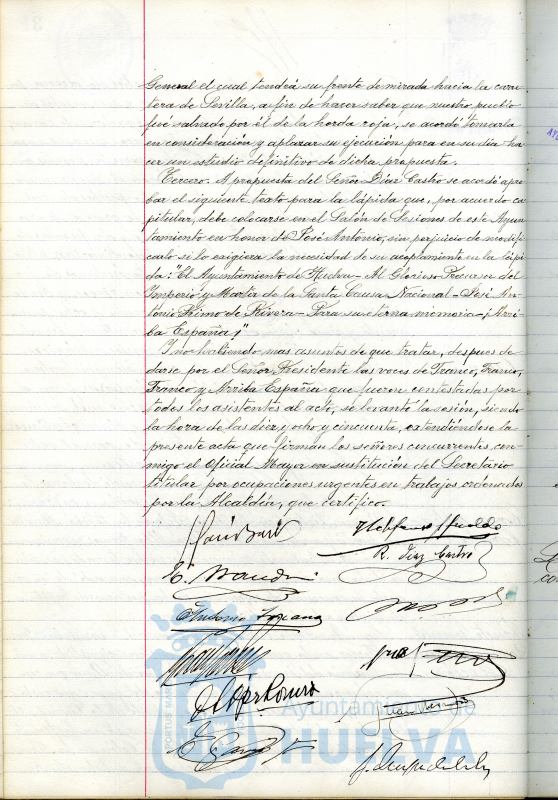 General el cual tendrá su frente de mirada hacia la carre-
tera de Sevilla, a fin de hacer saber que nuestro pueblo
fué salvado por él de la horda roja, se acordó tomarla
en consideración y aplazar su ejecución para en su dia ha-
cer un estudio definitivo de dicha propuesta.
Tercero. A propuesta del Señor Diaz Castro se acordó apro-
bar el siguiente texto para la lápida que, por acuerdo ca-
pitular, debe colocarse en el Salón de Sesiones de este Ayun-
tamiento en honor de José Antonio, sin perjuicio de modifi-
carlo si lo exigiera la necesidad de su acoplamiento en la lápi-
da: "El Ayuntamiento de Huelva - Al Glorioso Precursor del
Imperio y Martir de la Santa Causa Nacional - José An-
tonio Primo de Rivera - Para su eterna memoria - ¡Arri-
ba España!"
Y no habiendo mas asuntos de que tratar, despues de
darse por el Señor Presidente las voces de Franco, Franco,
Franco y Arriba España que fueron contestadas por
todos los asistentes al acto, se levantó la sesión, siendo
la hora de las diez y ocho y cincuenta, extendiéndose la
presente acta que firman los señores concurrentes con-
migo el Oficial Mayor en sustitución del Secretario
titular por ocupaciones urgentes en trabajos ordenados
por la Alcaldía, que certifico.
R. Diaz Castro
Antonio
Ayuntamiento de
HUELVA
PORTUS MARIS